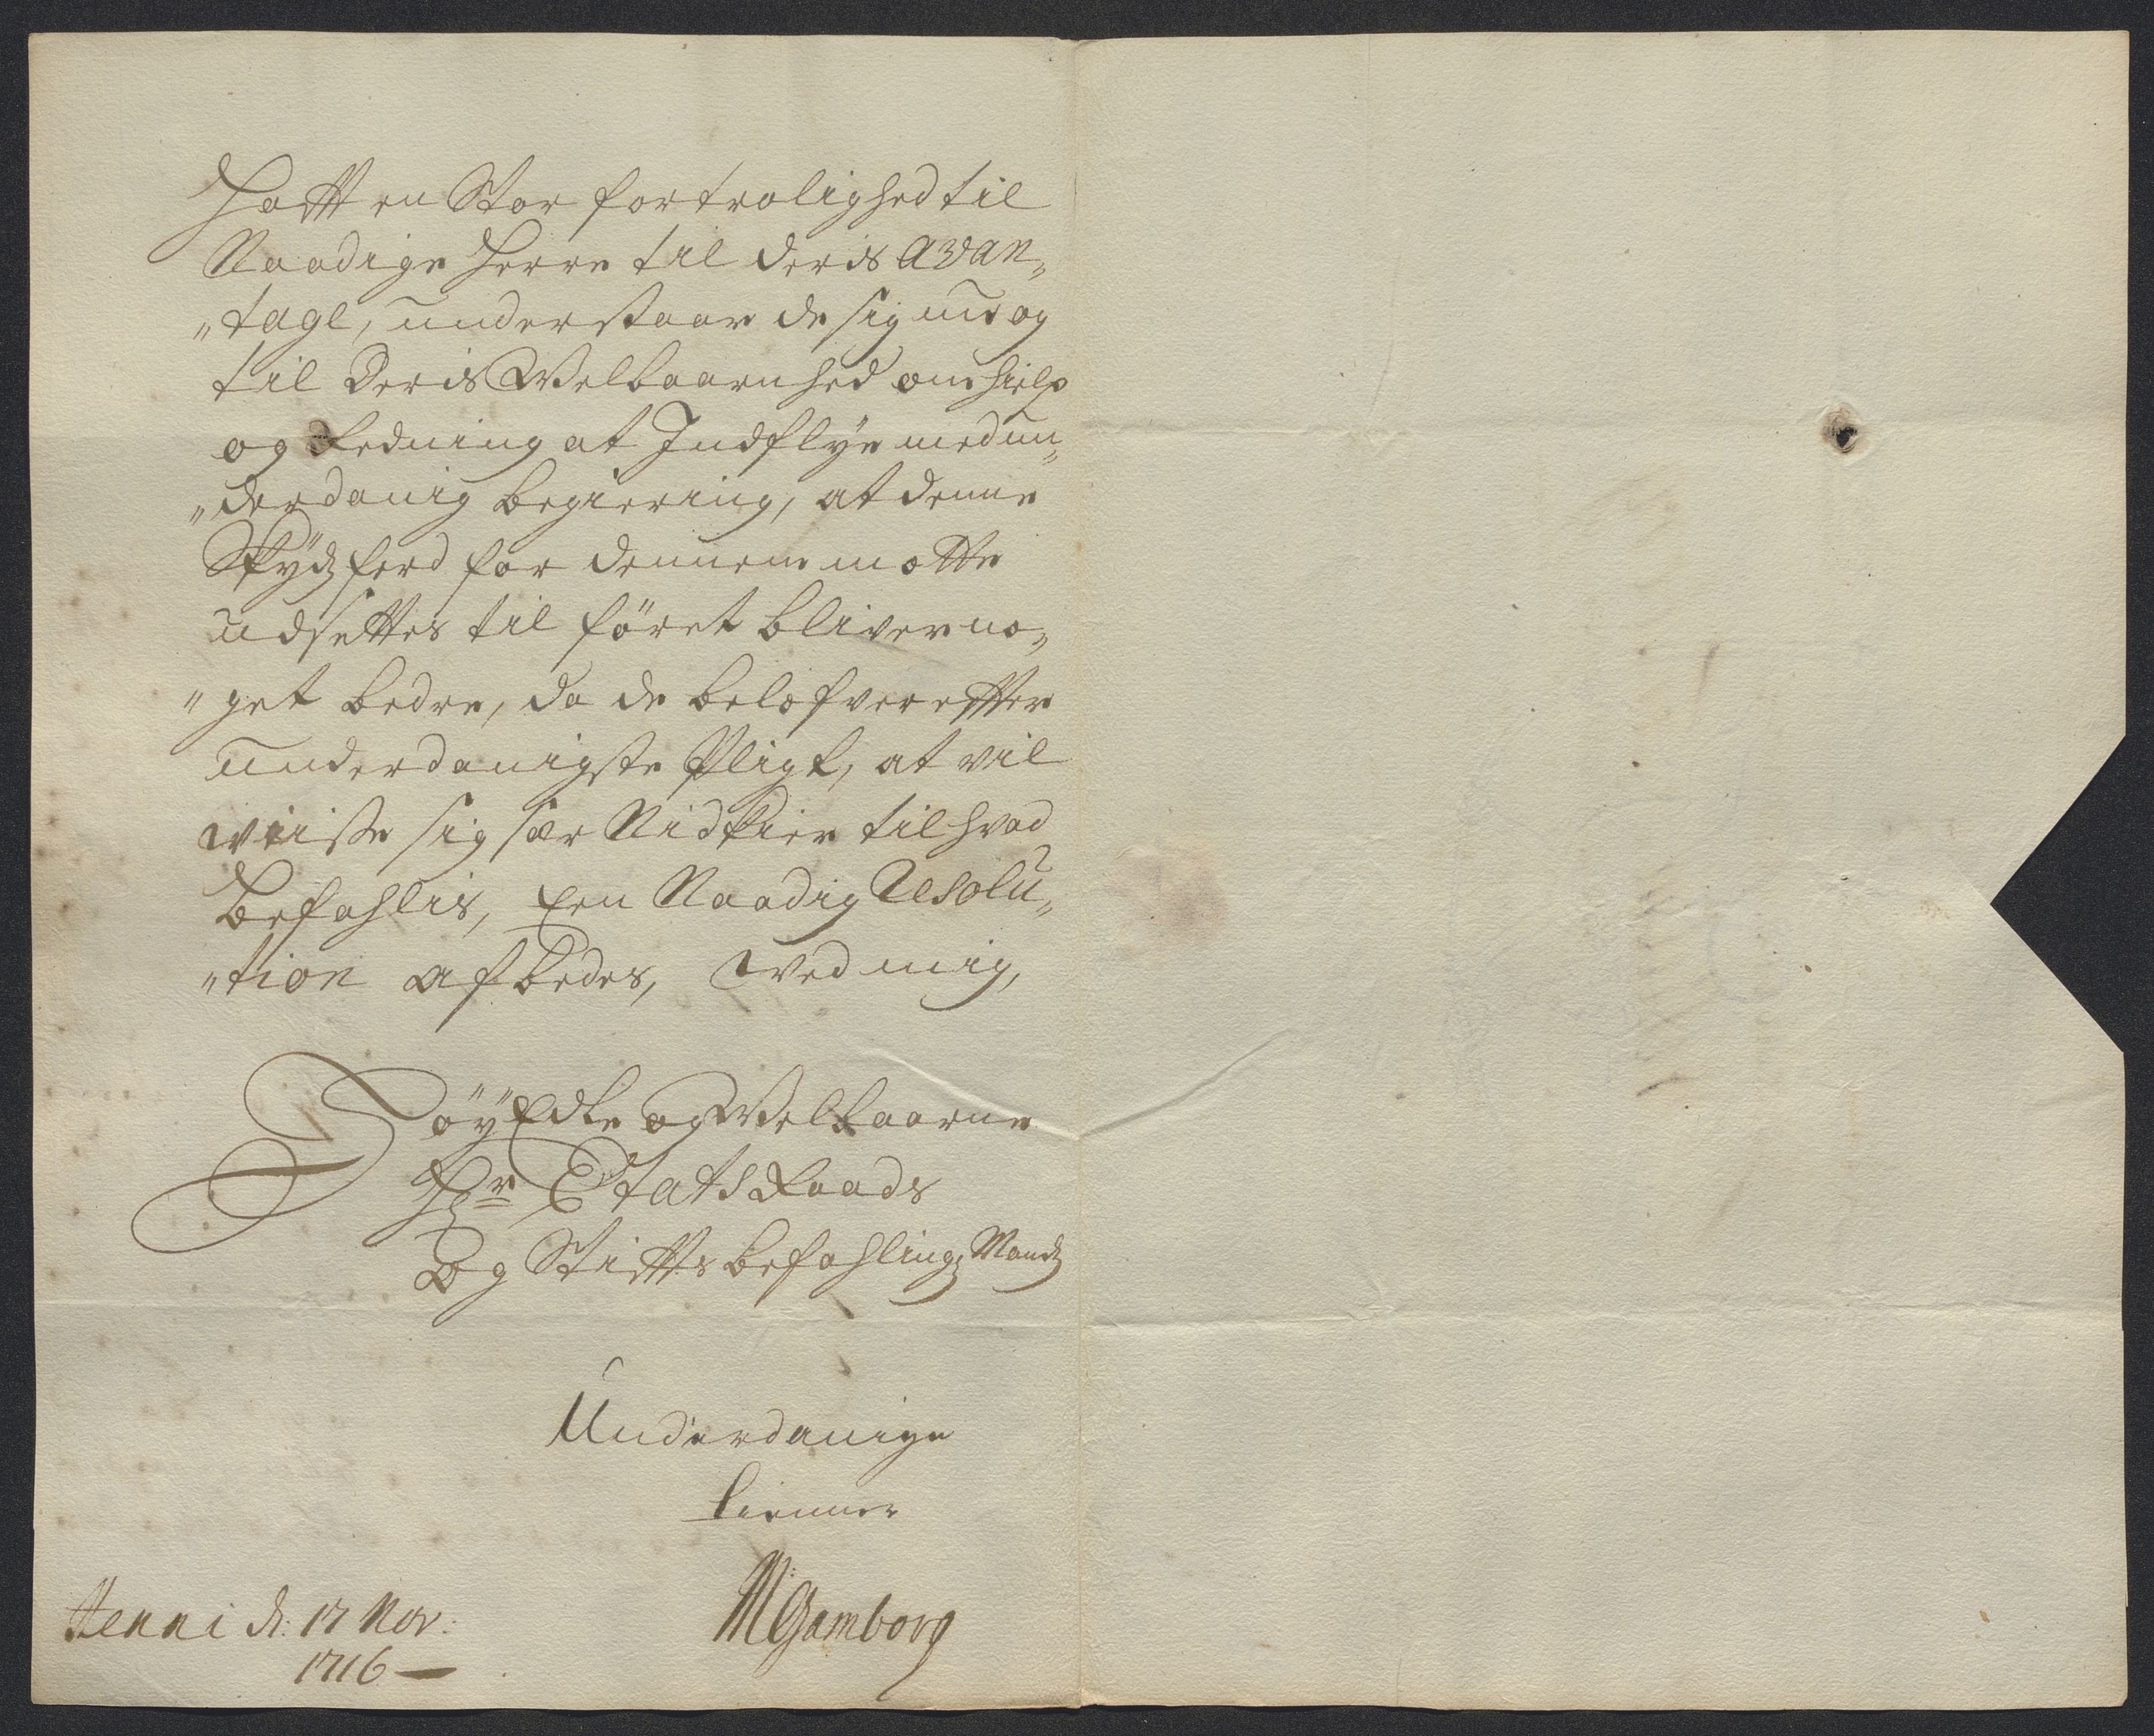 Hafft en Stor fortrolighed til
Naadige Herre til deris avan„
„tage, understaar de sig nu og
til Deris Welbaarnhed om hielp
og Redning at Indflye med un„
„derdanig begiering, at denne
Skydtzferd for dennem motte
udsettes til föret bliver no„
„get bedre, da de belofver effter
underdanigste Pligt, at vil
wiisse sig saa Nidkier til hvad
befahlis, Een Naadig Resolu„
„tion afbedes, wed mig,
Höy Edle og Welbaarne
Hr Etats Raads
Og Stiffts befahlings Mandz
Underdanige
tienner
MGamborg
d: 17 Nov:
1716 —